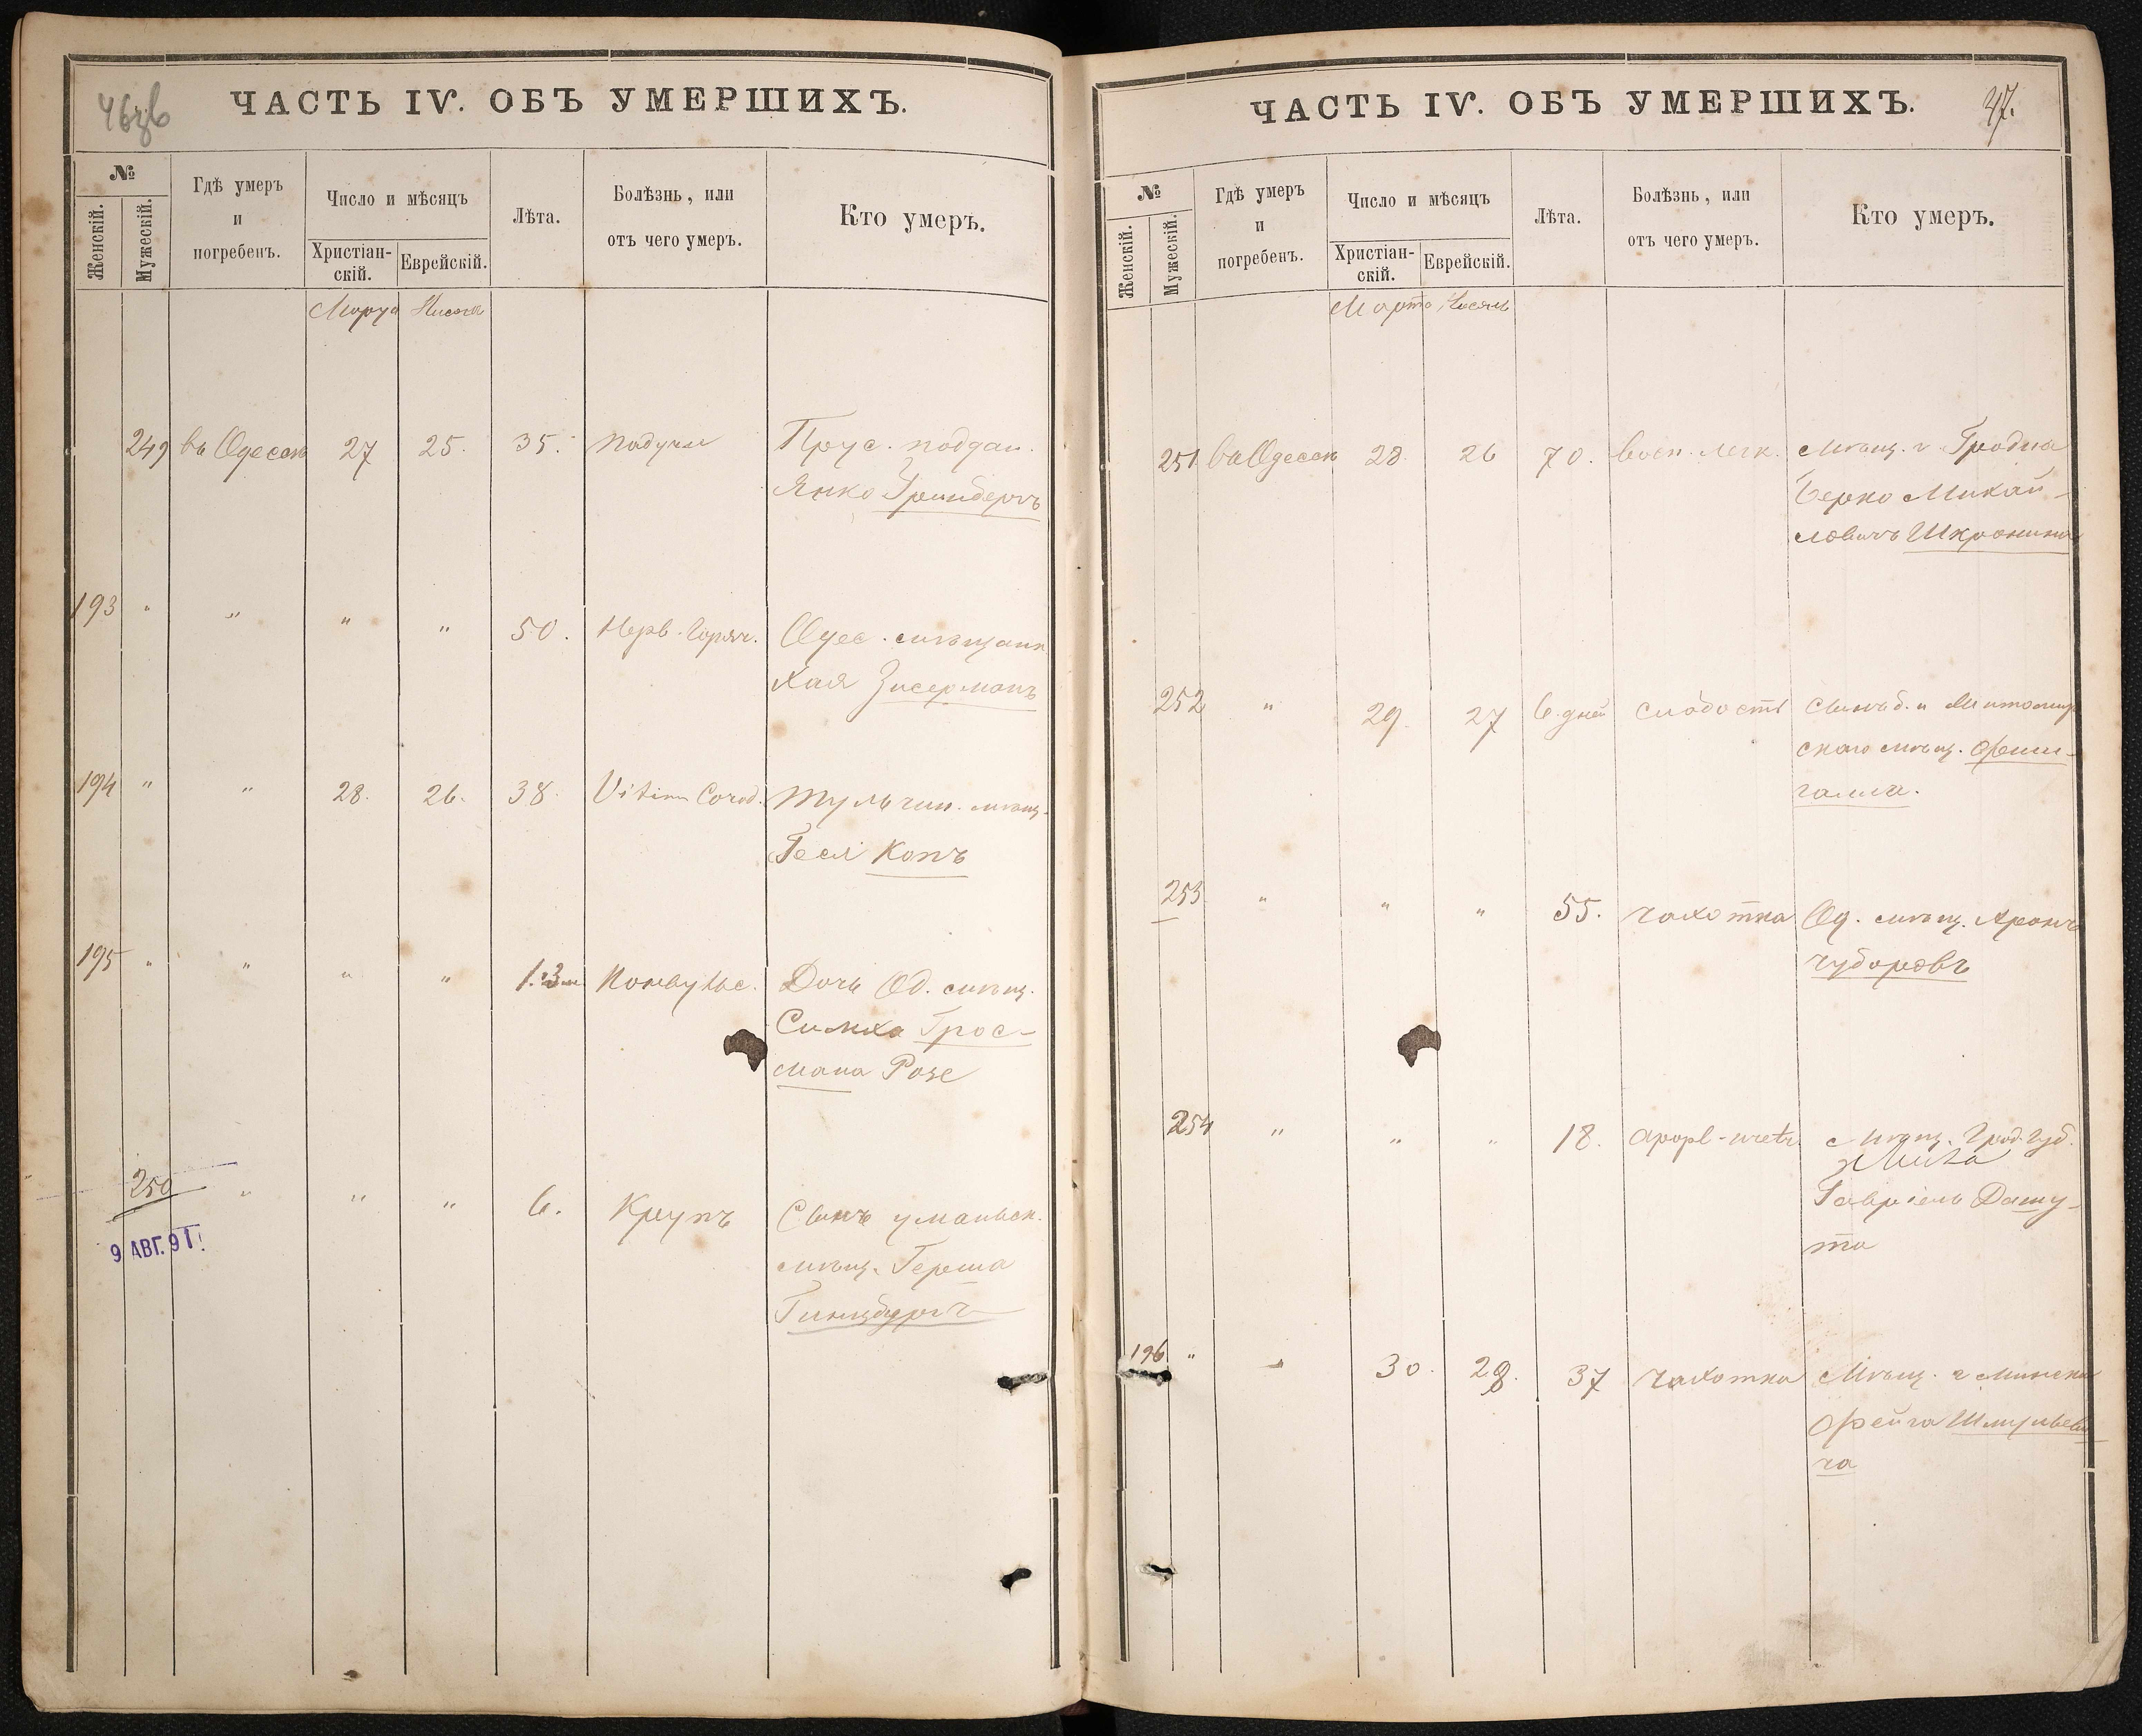 ЧАСТЬ IV. ОБЪ УМЕРШИХЪ.
№
Женскій.
Мужескій.
Гдѣ умеръ
и
погребенъ.
Число и мѣсяцъ
Христіан-
скій.
Еврейскій.
Лѣта.
Болѣзнь, или
отъ чего умеръ.
Кто умеръ.
249 въ Одессѣ 27 25. 35. Прус. поддан.
Янко Гринбергъ
193 " " " " 50. Нерв. горяч. Одес. мѣщанк
Хая Зисерманъ
194 " " 28. 26. 38. Vitium Cord. Тульчин. мѣщ.
Геся Копъ
195 " " " " 1.3 м Конвульс. Дочь Од. мѣщ.
Симха Грос-
мана Розе
250 " " " 6. Крупъ Сынъ уманьск.
мѣщ. Герша
Гинцбургъ
9 АВГ. 91
ЧАСТЬ IV. ОБЪ УМЕРШИХЪ.
47.
№
Женскій.
Мужескій.
Гдѣ умеръ
и
погребенъ.
Число и мѣсяцъ
Христіан-
скій.
Еврейскій.
Лѣта.
Болѣзнь, или
отъ чего умеръ.
Кто умеръ.
Марта Нисанъ
251 въ Одессѣ 28. 26 70. Восп. легк. Мѣщ. г Гродна
Берко Михай-
ловичъ
252 " 29. 27 6 дней слабость
скаго мѣщ.
253 " " " 55. чахотка Од. мѣщ. Аронъ
Чуборовъ
254 " " " 18. Мѣщ. Грод. губ.
Гавріель Дашу-
та
196 " " 30. 28. 37 чахотка Мѣщ. г Минска
Фейга Шмульеви-
ча